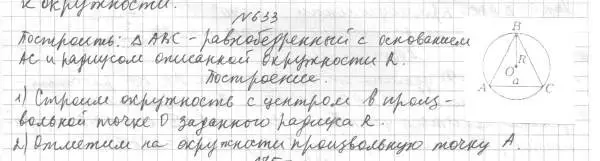 к окружности.
№633
Построить: △ ABC - равнобедренный с основанием
AC и радиусом описанной окружности R.
Построение.
1) Строим окружность с центром в произ-
вольной точке O заданного радиуса R.
2) Отметим на окружности произвольную точку A.
B
R
O
a
A
C